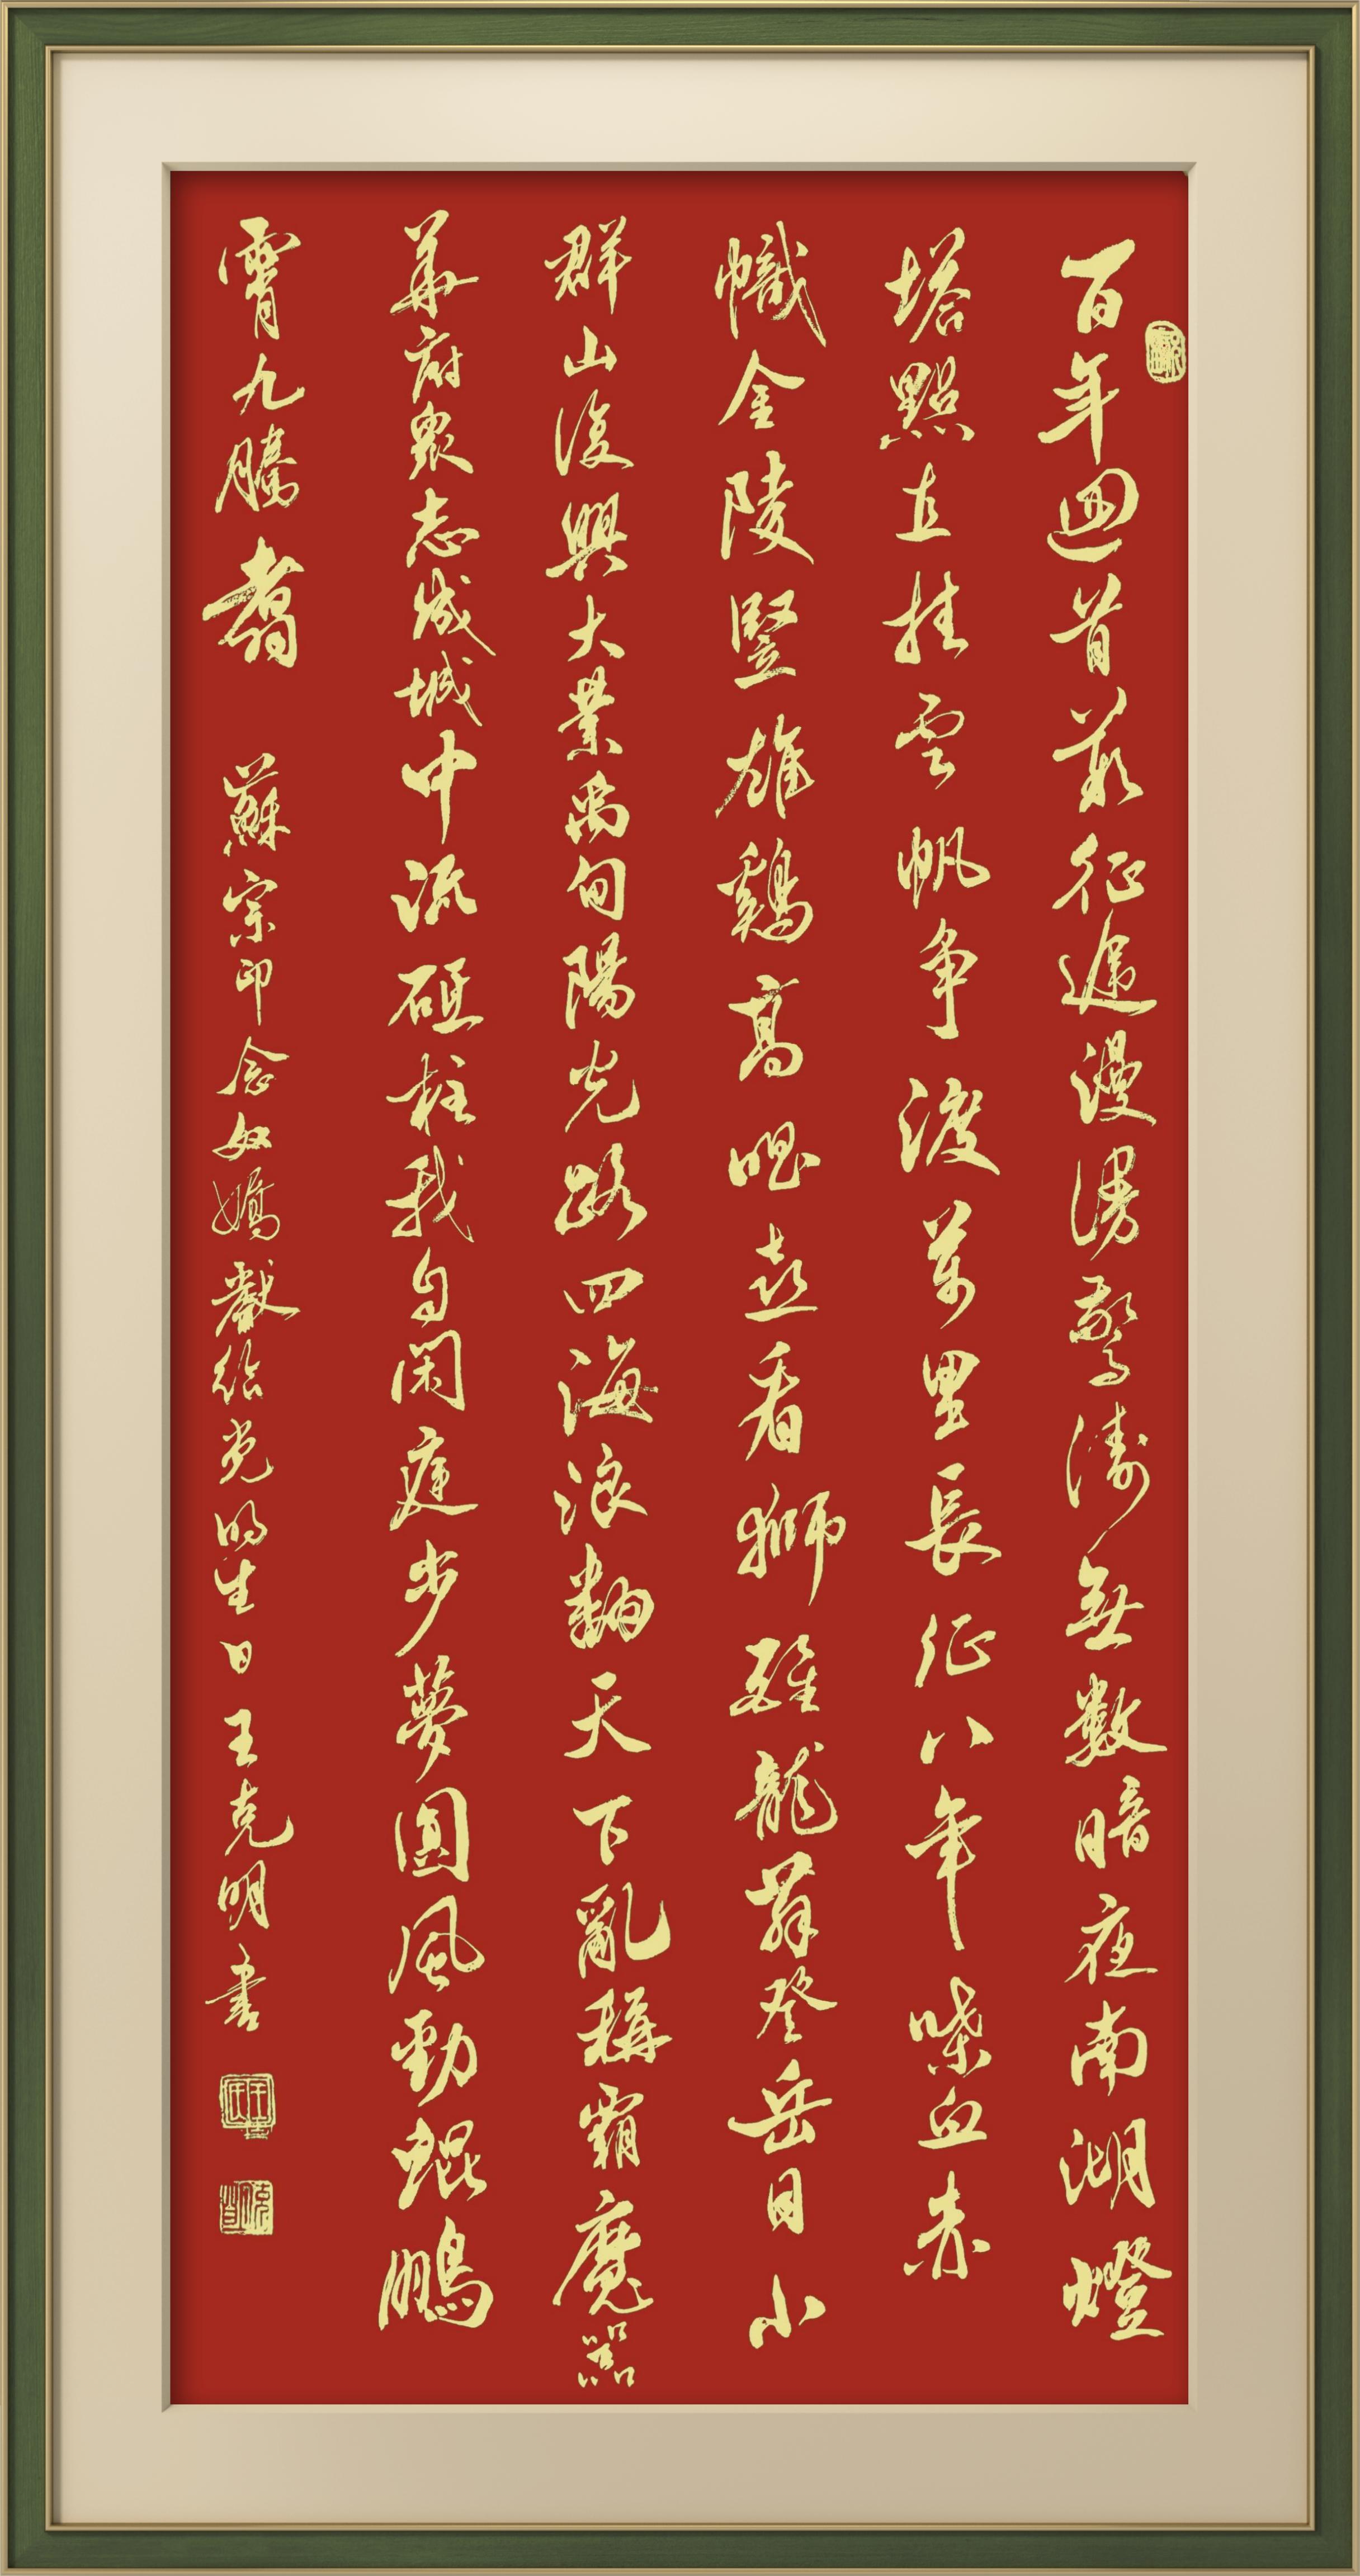 百年回首叢征途漫漫驚濤無數暗夜南湖燈
塔照直挂雲帆爭渡萬里長征八年喋血赤
幟金陵豎雄鷄高唱喜看獅醒龍舞登岳目小
群山復興大業禹甸陽光路四海浪翻天下亂稱霸魔囂
華府衆志成城中流砥柱我自閑庭步夢圓風勁鯤鵬
霄九騰翥
蘇宗印念奴嬌獻給党的生日王克明書